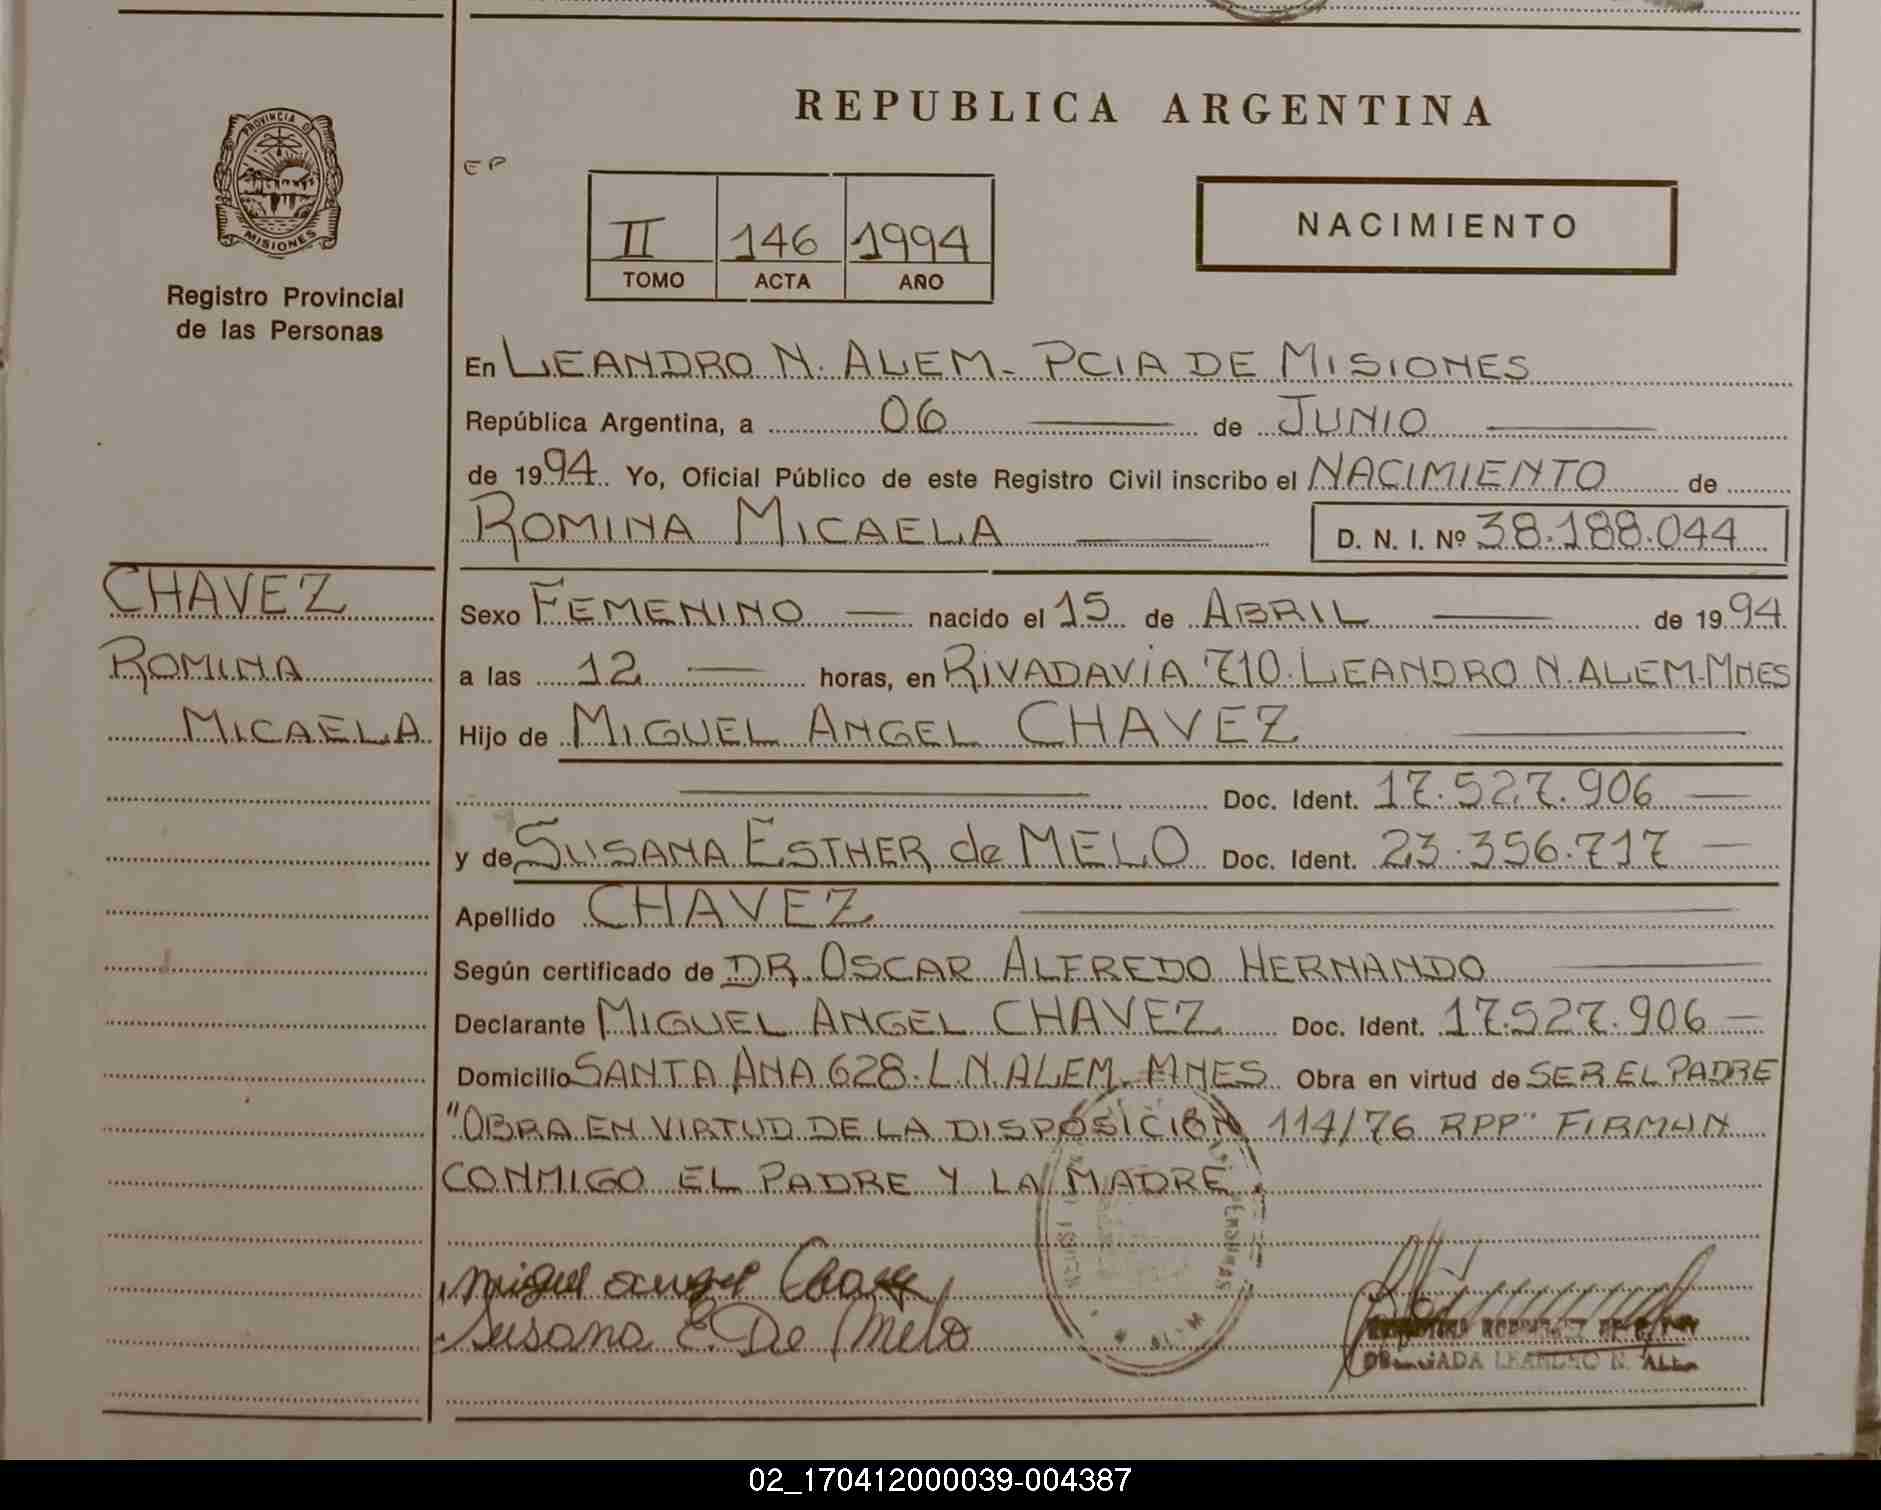 REPUBLICA ARGENTINA
PROVINCIA DE
MISIONES
Registro Provincial
de las Personas
EP
II 146 1994
TOMO ACTA AÑO
NACIMIENTO
En LEANDRO N. ALEM - PCIA DE MISIONES
República Argentina, a 06 de JUNIO
de 1994 Yo, Oficial Público de este Registro Civil inscribo el NACIMIENTO de
ROMINA MICAELA D. N. I. Nº 38.188.044
CHAVEZ
ROMINA
MICAELA
Sexo FEMENINO nacido el 15 de ABRIL de 1994
a las 12 horas, en RIVADAVIA 710. LEANDRO N. ALEM. MNES
Hijo de MIGUEL ANGEL CHAVEZ
Doc. Ident. 17.527.906
y de SUSANA ESTHER de MELO Doc. Ident. 23.356.717
Apellido CHAVEZ
Según certificado de DR. OSCAR ALFREDO HERNANDO
Declarante MIGUEL ANGEL CHAVEZ Doc. Ident. 17.527.906
Domicilio SANTA ANA 628. L.N. ALEM. MNES Obra en virtud de SER EL PADRE
"OBRA EN VIRTUD DE LA DISPOSICION 114/76 RPP" FIRMAN
CONMIGO EL PADRE Y LA MADRE.
miguel angel Chavez
Susana E. De Melo
LEANDRO N. ALEM
02_170412000039-004387